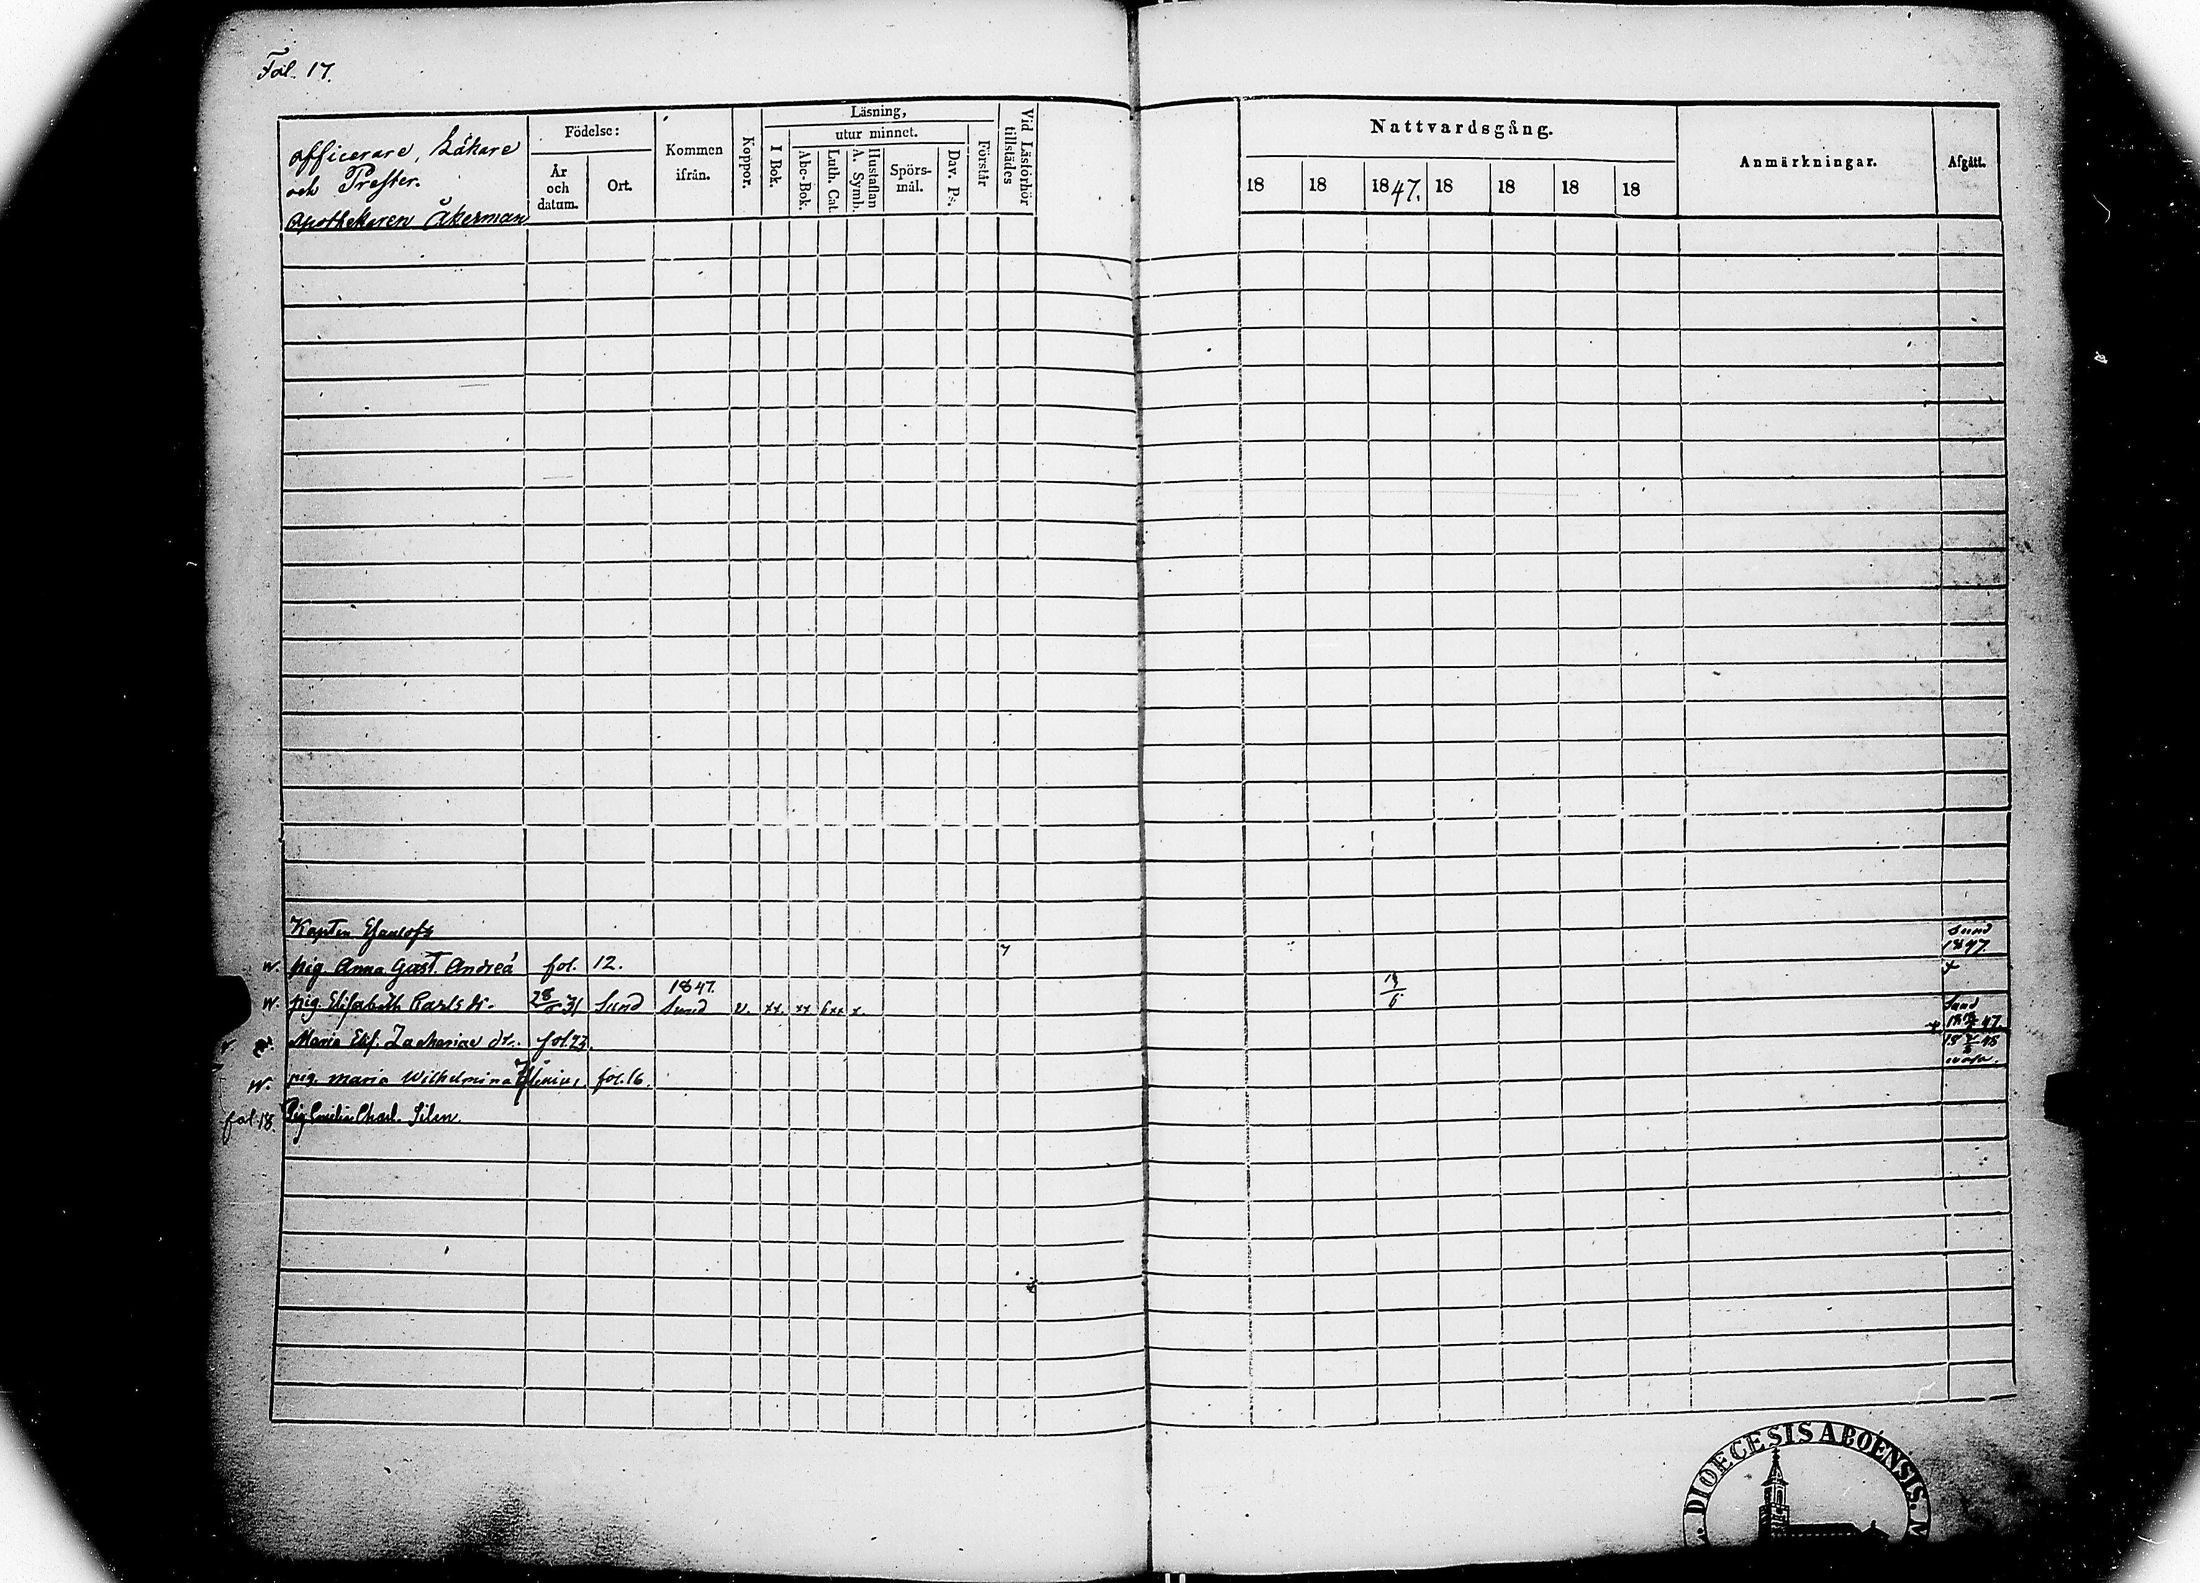 Fol. 17.
officerare, Läkare
och Prester.
apothekaren Åkerman
Födelse:
År och datum.
Ort.
Kommen ifrån.
Koppor.
Läsning,
utur minnet.
I Bok.
Abc-Bok.
Luth. Cat.
Hustaflan A. Symb.
Spörs-mål.
Dav. Ps.
Förstår
Vid Läsförhör tillstädes
Nattvardsgång.
18 18 1847. 18 18 18 18
Anmärkningar.
Afgått.
Kapten
Sund 1847.
w. pig Anna Gust. Andreä fol. 12. 7
w. pig Elisabeth Carls dr. 31 Sund 1847. Sund v. xx. xx
Maria Elis. Zachariae dr. fol. 23.
Sund 47.
w. pig. Maria Wilhelmina fol. 16.
18 48
fol 18. Pig Emilia Charl. Silen.
DIOECESIS ABOENSIS.